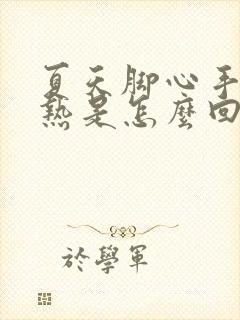 夏天脚心手
熱是怎麼回
於學軍